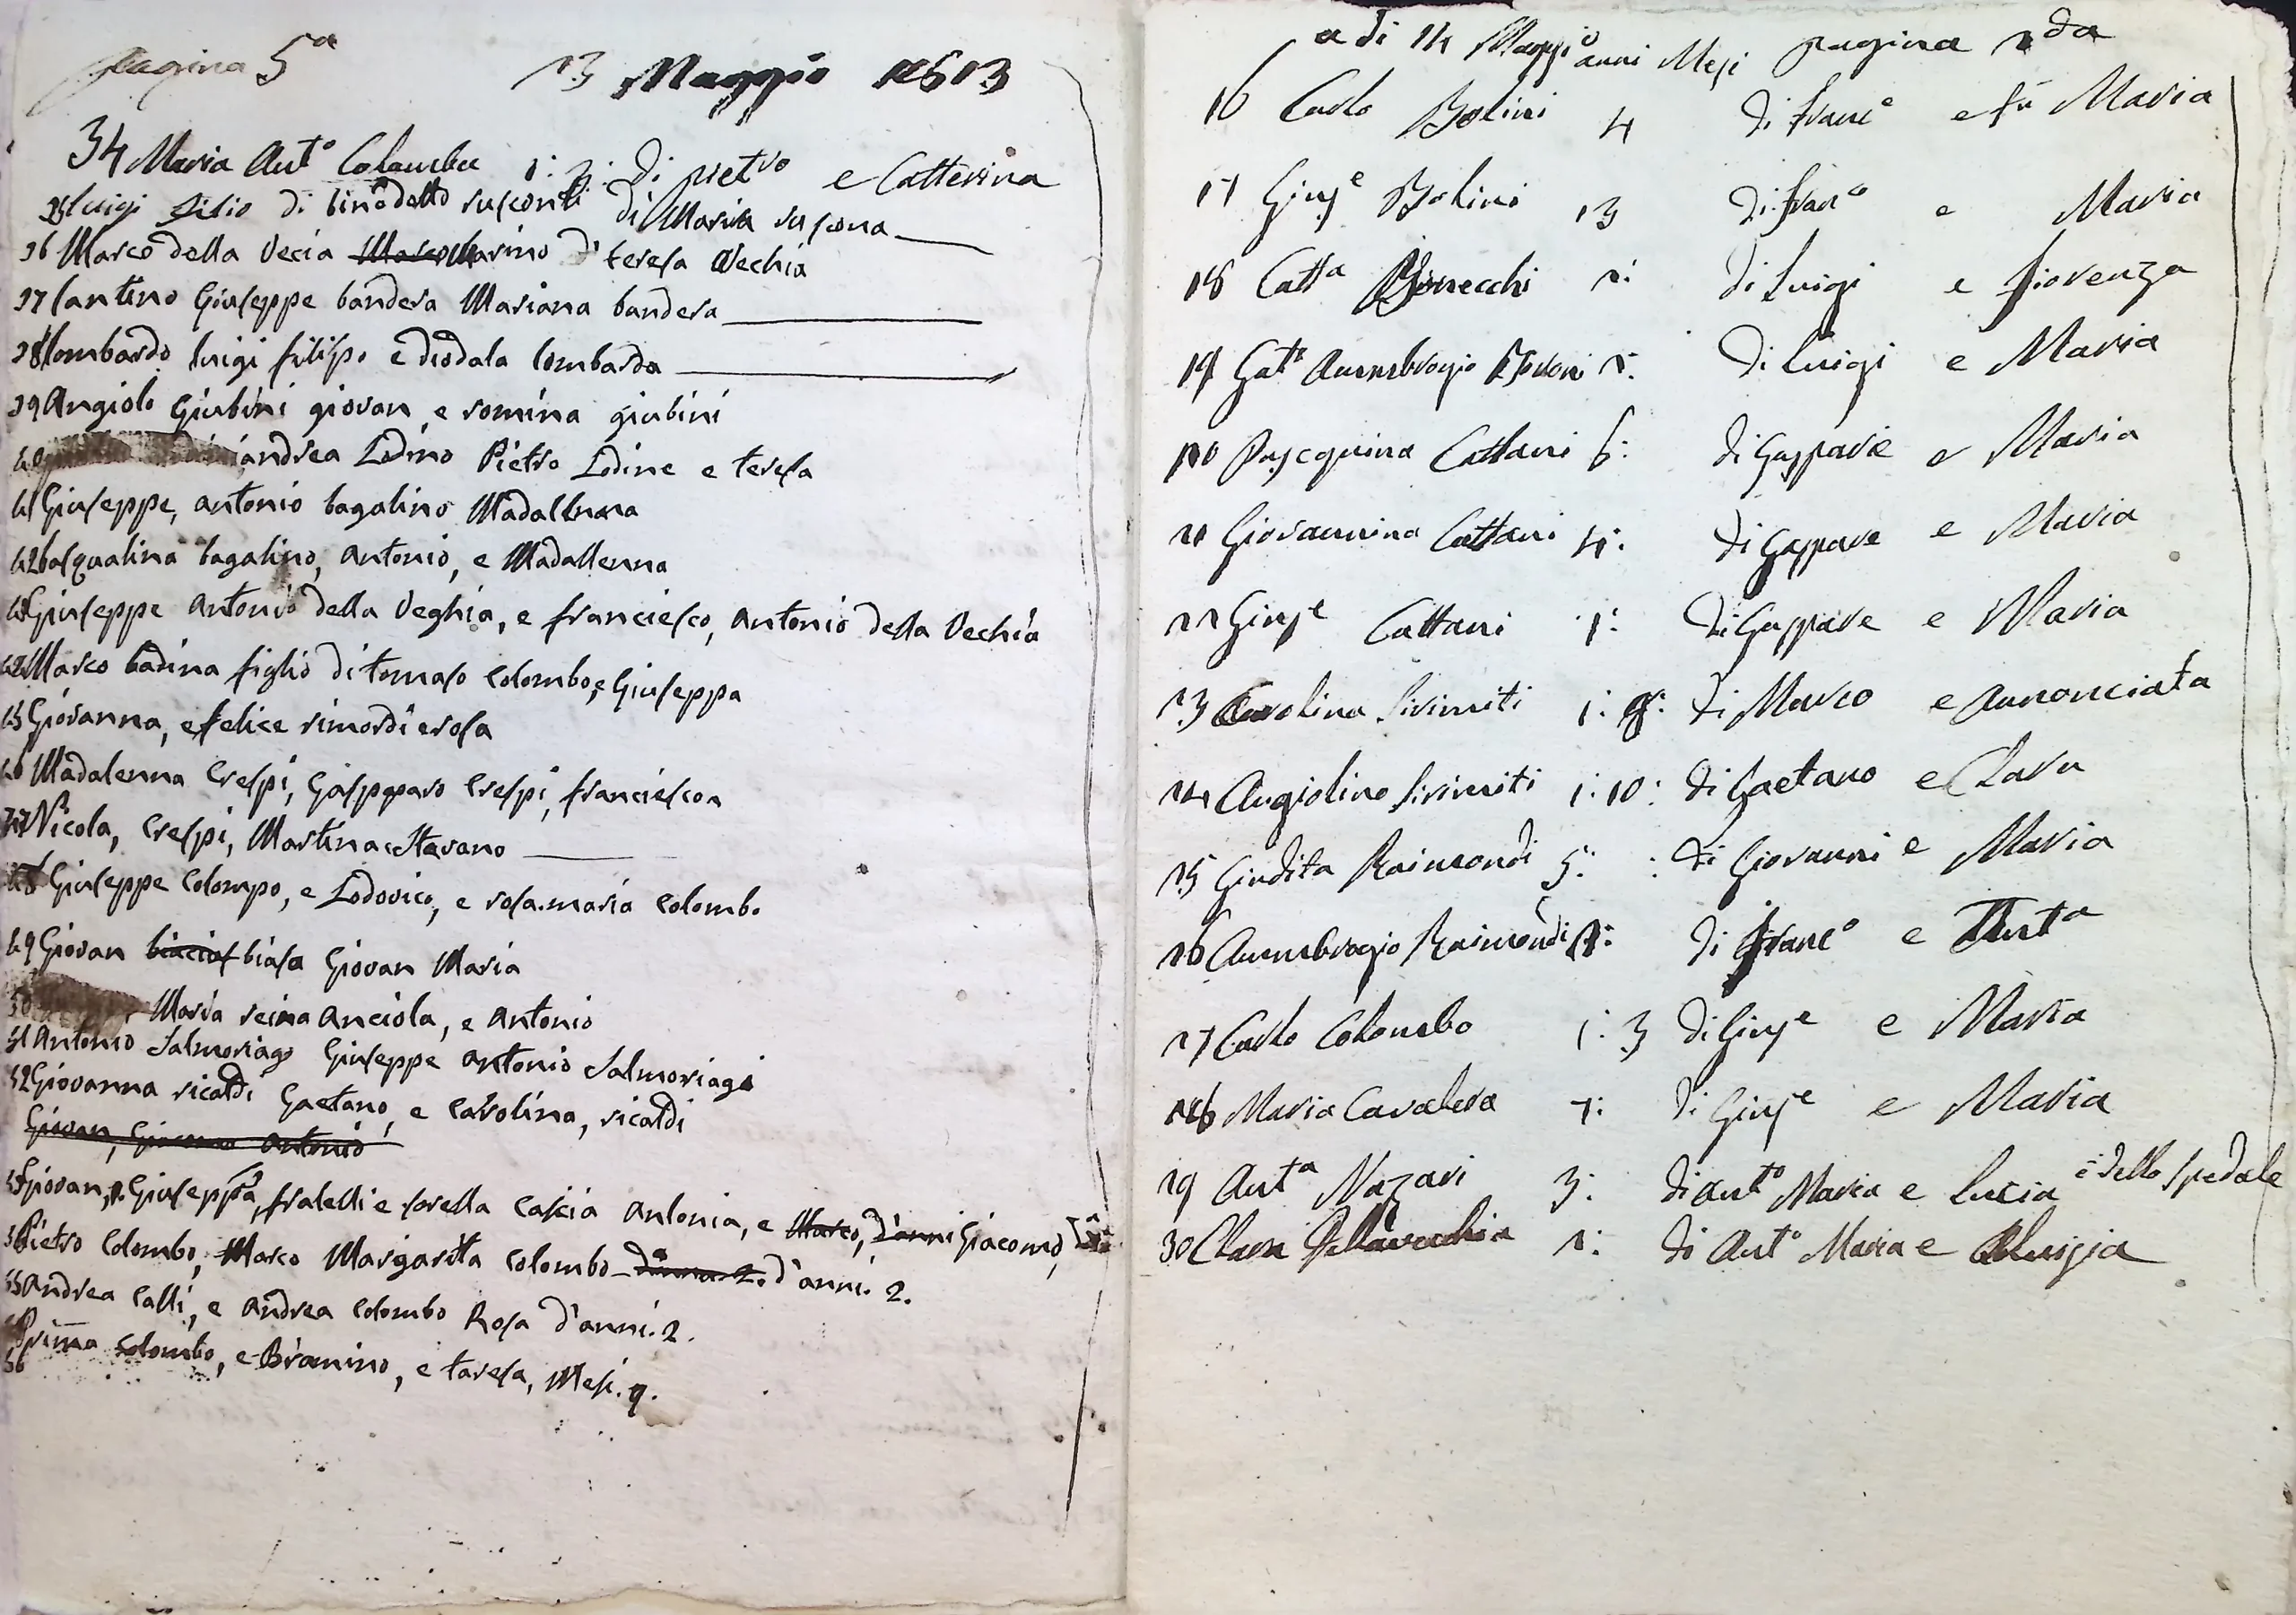 pagina 5a
23 Maggio 1813
34 Maria Anto Colomba 1: 2: di pietro e Catterina
35 luigi filio di binedetto rusconi di Maria ruscona
36 Marco della Vecia Marco Marino d' teresa Vechia
37 Santino Giuseppe bandera Mariana bandera
38 lombardo luigi filipo e diodala lombarda
39 Angiolo Giubini giovan e romina giubini
40 andrea Lodino Pietro Lodine e teresa
41 Giuseppe, antonio bagalino Madallena
42 basqualina bagalino, antonio, e Madallenna
43 Giuseppe antonio della Veghia, e franciesco, antonio della Vechia
Marco badina figlio di tomaso Colombo, e Giuseppa
45 Giovanna, e felice rimordi e rosa
46 Madalenna Crespi, Gasparo Crespi, franciesca
47 Nicola, Crespi, Martina Stavano
48 Giuseppe Colompo, e Lodovico, e rosa.maria Colombo
49 Giovan biasa Giovan Maria
50 Maria reina Anciola, e Antonio
51 Antonio Salmoriago Giuseppe antonio Salmoriagi
52 Giovanna ricaldi Gaetano, e Carolina, ricaldi
Giovan, Giacomo Antonio
53 Giovan, e Giuseppa, fratelli e sorella Cascia Antonia, e Marco, d'anni Giacomo,
Pietro Colombo, Marco Margarita Colombo d'anni. 2.
55 Andrea Calli, e Andrea Colombo Rosa d'anni. 2.
56 Prima Colombo, e Bramino, e taresa, Mesi. 9.
a di 24 Maggio anni Mesi pagina 2da
16 Carlo Bolini 4 di Franco e fu Maria
17 Giuse Bolini 13 di Franco e Maria
18 Catta Bonecchi 2: di Luigi e Fiorenza
19 Gato Aumbrogio 2: di Luigi e Maria
20 Pascquina Cattani 6: di Gaspare e Maria
21 Giovannina Cattani 4: di Gaspare e Maria
22 Giuse Cattani 1: di Gaspare e Maria
23 Carolina Sirimiti 1: 8: di Marco e Annonciata
24 Angiolino Sirimiti 1: 10: di Gaetano e Clara
25 Giudita Raimondi 5: di Giovanni e Maria
26 Aumbrogio Raimondi 2: di Franco e Anta
27 Carlo Colombo 1: 3 di Giuse e Maria
28 Maria Cavalera 7: di Giuse e Maria
29 Anta Nazari 3: di Anto Maria e Lucia è dello Spedale
30 Clara Dellavecchia 2: di Anto Maria e Aluigia